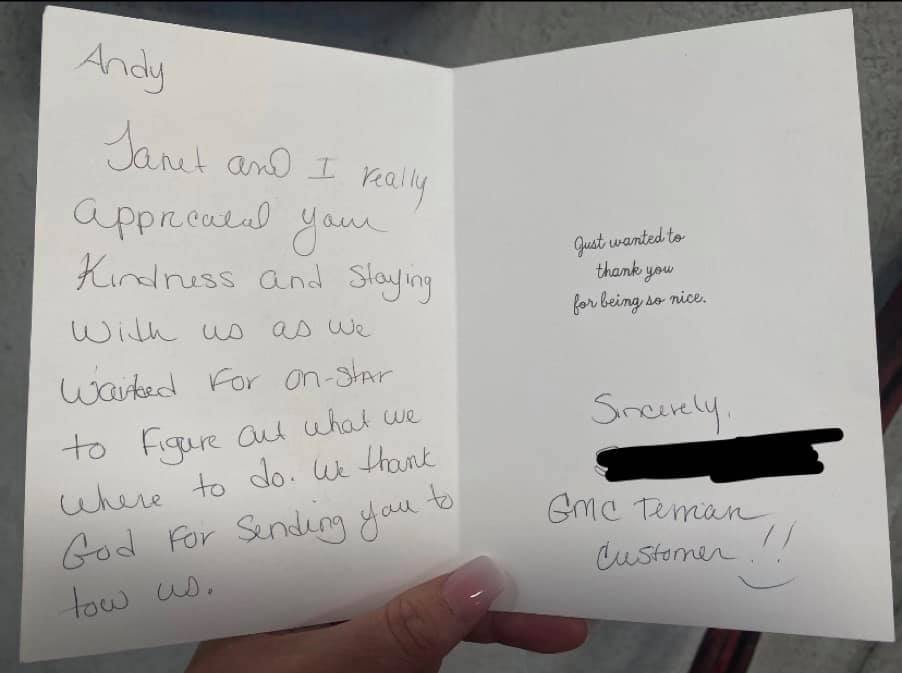 Andy
Janet and I really
appricated your
Kindness and Staying
With us as we
Waited For on-star
to Figure out what we
where to do. We thank
God For Sending you to
tow us.
Just wanted to
thank you
for being so nice.
Sincerely,
GMC Terrian
Customer!!